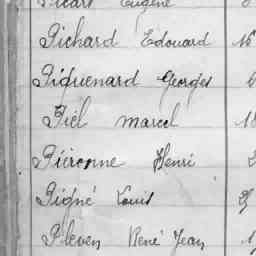 Picart Eugène
Pichard Edouard 16
Piquenard Georges
Piel Marcel 18
Piéronne Henri 2
Pigné Louis
Pleven René Jean